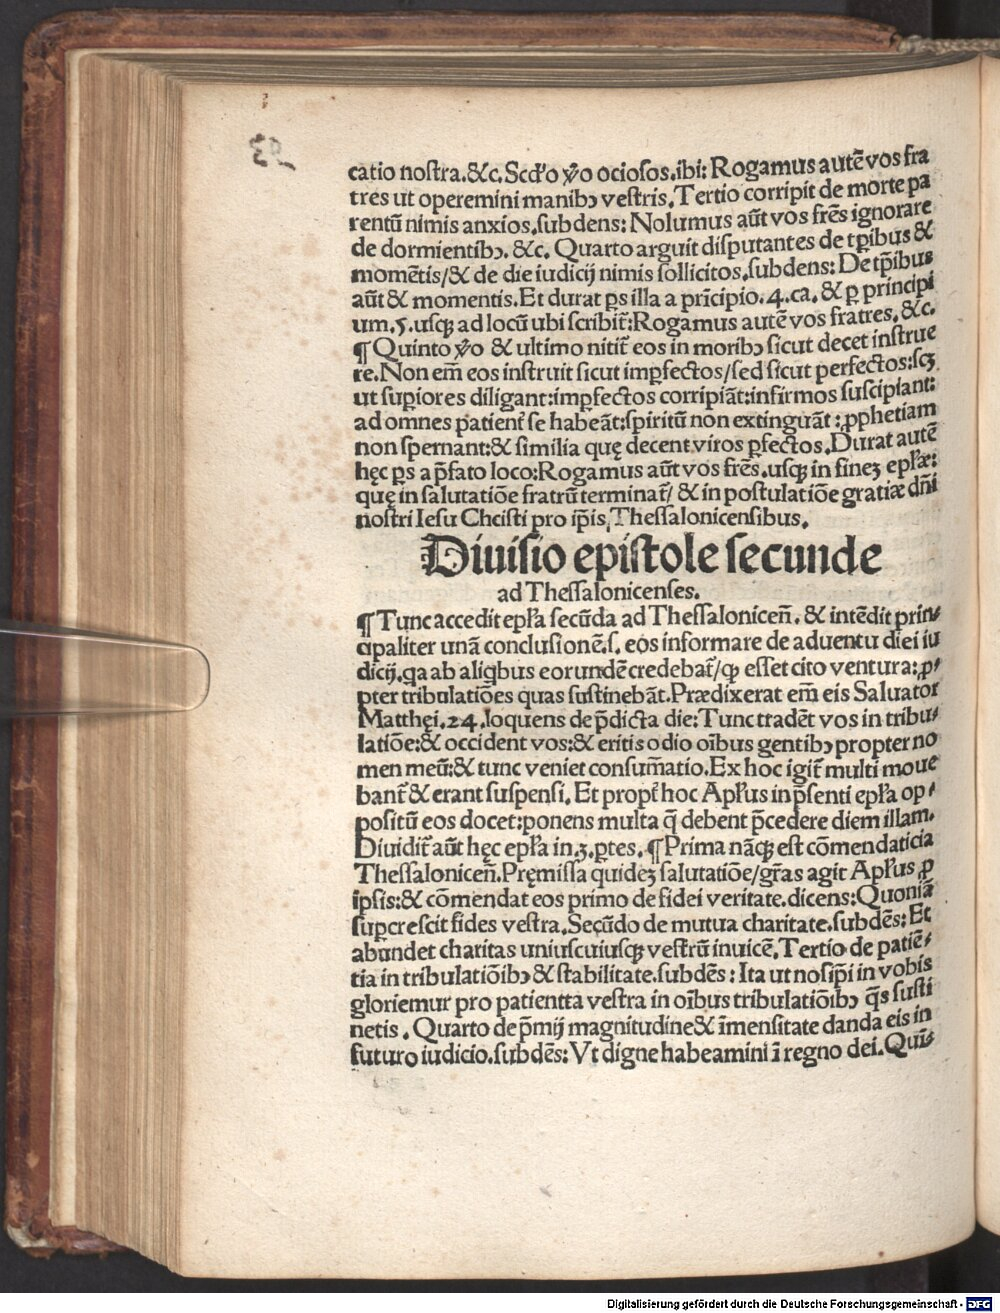 catio nostra.&c. Scd'o ꝟo ociosos.ibi: Rogamus autē vos fra
tres ut operemini manibꝫ vestris. Tertio corripit de morte pa
rentū nimis anxios.subdens: Nolumus aūt vos frēs ignorare
de dormientibꝫ. &c. Quarto arguit disputantes de tp̄ibus &
momētis/& de die iudicij nimis sollicitos.subdens: De tp̄ibus
aūt & momentis. Et durat ps illa a prīcipio.4.ca. & ꝑ principi
um.5.usqꝫ ad locū ubi scribit̄: Rogamus autē vos fratres. &c.
¶ Quinto ꝟo & ultimo nitit̄ eos in moribꝫ sicut decet instrue
re. Non em̄ eos instruit sicut imꝑfectos/sed sicut perfectos:scꝫ
ut suꝑiores diligant:imꝑfectos corripiāt:infirmos suscipiant:
ad omnes patient̄ se habeāt:spiritū non extinguāt: ꝓphetiam
non spernant:& similia quę decent viros ꝑfectos. Durat autē
hęc ps a p̄fato loco: Rogamus aūt vos frēs.usqꝫ in fineꝫ epłæ:
quę in salutatiōe fratrū terminat̄/ & in postulatiōe gratiæ dn̄i
nostri Iesu Chcisti pro ip̄is Thessalonicensibus.
Diuisio epistole secunde
ad Thessalonicenses.
¶ Tunc accedit epła secūda ad Thessalonicen̄. & intēdit prin⸗
cipaliter unā conclusionē.s. eos informare de aduentu diei iu
dicij.qa ab aliqbus eorundē credebat̄/qꝫ esset cito ventura: ꝓ⸗
pter tribulatiōes quas sustinebāt. Prædixerat em̄ eis Saluator
Matthęi.24.loquens de p̄dicta die: Tunc tradēt vos in tribu⸗
latiōe:& occident vos:& eritis odio oībus gentibꝫ propter no
men meū:& tunc veniet consum̄atio. Ex hoc igit̄ multi moue
bant̄ & erant suspensi. Et propt̄ hoc Apłus in p̄senti epła op⸗
positū eos docet:ponens multa q̄ debent p̄cedere diem illam.
Diuidit̄ aūt hęc epła in.3.ꝑtes. ¶ Prima nācqꝫ est cōmendaticia
Thessalonicen̄. Pręmissa quideꝫ salutatiōe/gr̄as agit Apłus ꝓ
ipsis:& cōmendat eos primo de fidei veritate.dicens: Quoniā
suꝑcrescit fides vestra. Secūdo de mutua charitate.subdēs: Et
abundet charitas uniuscuiusqꝫ vestrū inuicē. Tertio de patiē⸗
tia in tribulatiōibꝫ & stabilitate.subdēs: Ita ut nosip̄i in vobis
gloriemur pro patientta vestra in oībus tribulatiōibꝫ q̄s susti
netis. Quarto de p̄mij magnitudine & īmensitate danda eis in
futuro iudicio.subdēs: Vt digne habeamini ī regno dei. Quī⸗
Digitalisierung gefördert durch die Deutsche Forschungsgemeinschaft - DFG